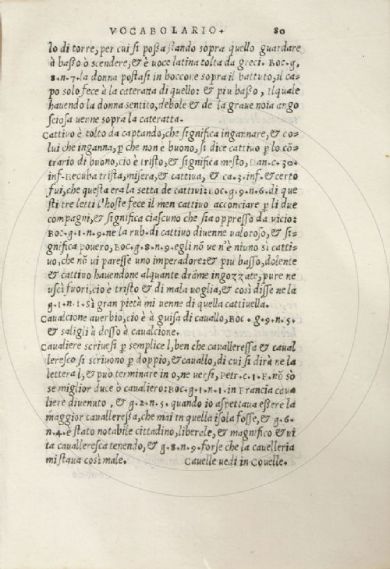 VOCABOLARIO. 80
lo di torre, per cui si poßa stando sopra quello guardare
à baßo ò scendere, & è uoce latina tolta da greci. BOC. g.
8. n. 7. la donna postasi in boccone sopra il battuto, il ca-
po solo fece à la caterata di quello: & piu baßo, Ilquale
hauendo la donna sentito, debole & de la graue noia ango
sciosa uenne sopra la cateratta.
Cattiuo è tolto da captando, che significa ingannare, & co-
lui che inganna, p che non è buono, si dice cattiuo p lo cō-
trario di buono, cio è tristo, & significa mesto, Dan. c. 30.
inf. Hecuba trista, misera, & cattiua, & ca. 3. inf. & certo
fui, che questa era la setta de cattiui: BOC. g. 9. n. 6. di que
sti tre letti l'hoste fece il men cattiuo acconciare p li due
compagni, & significa ciascuno che sia oppresso da uicio:
BOC. g. 1. n. 9. ne la rub. di cattiuo diuenne ualoroso, & si-
gnifica pouero, BOC. g. 8. n. 9. egli nō ue n'è niuno sì catti-
uo, che nō ui paresse uno imperadore: & piu basso, dolente
& cattiuo hauendone alquante drāme ingozzate, pure ne
uscì fuori, cio è tristo & di mala uoglia, & così disse ne la
g. 1. n. 1. sì gran pietà mi uenne di quella cattiuella.
Caualcione auerbio, cio è à guisa di cauallo, BOC. g. 9. n. 5.
& saligli à dosso à caualcione.
Caualiere scriuesi p semplice l, ben che cauallereßa & caual
leresco si scriuono p doppio, & cauallo, di cui si dirà ne la
lettera l, & può terminare in o, ne uersi, Petr. c. 1. F. nō sò
se miglior duce ò caualiero: BOC. g. 1. n. 1. in Francia caua
liere diuenuto, & g. 2. n. 5. quando io aspettaua eßere la
maggior cauallereßa, che mai in quella isola fosse, & g. 6.
n. 4. è stato notabile cittadino, liberale, & magnifico & ui
ta caualleresca tenendo, & g. 8. n. 9. forse che la caualleria
mi staua così male. Cauelle uedi in Couelle.